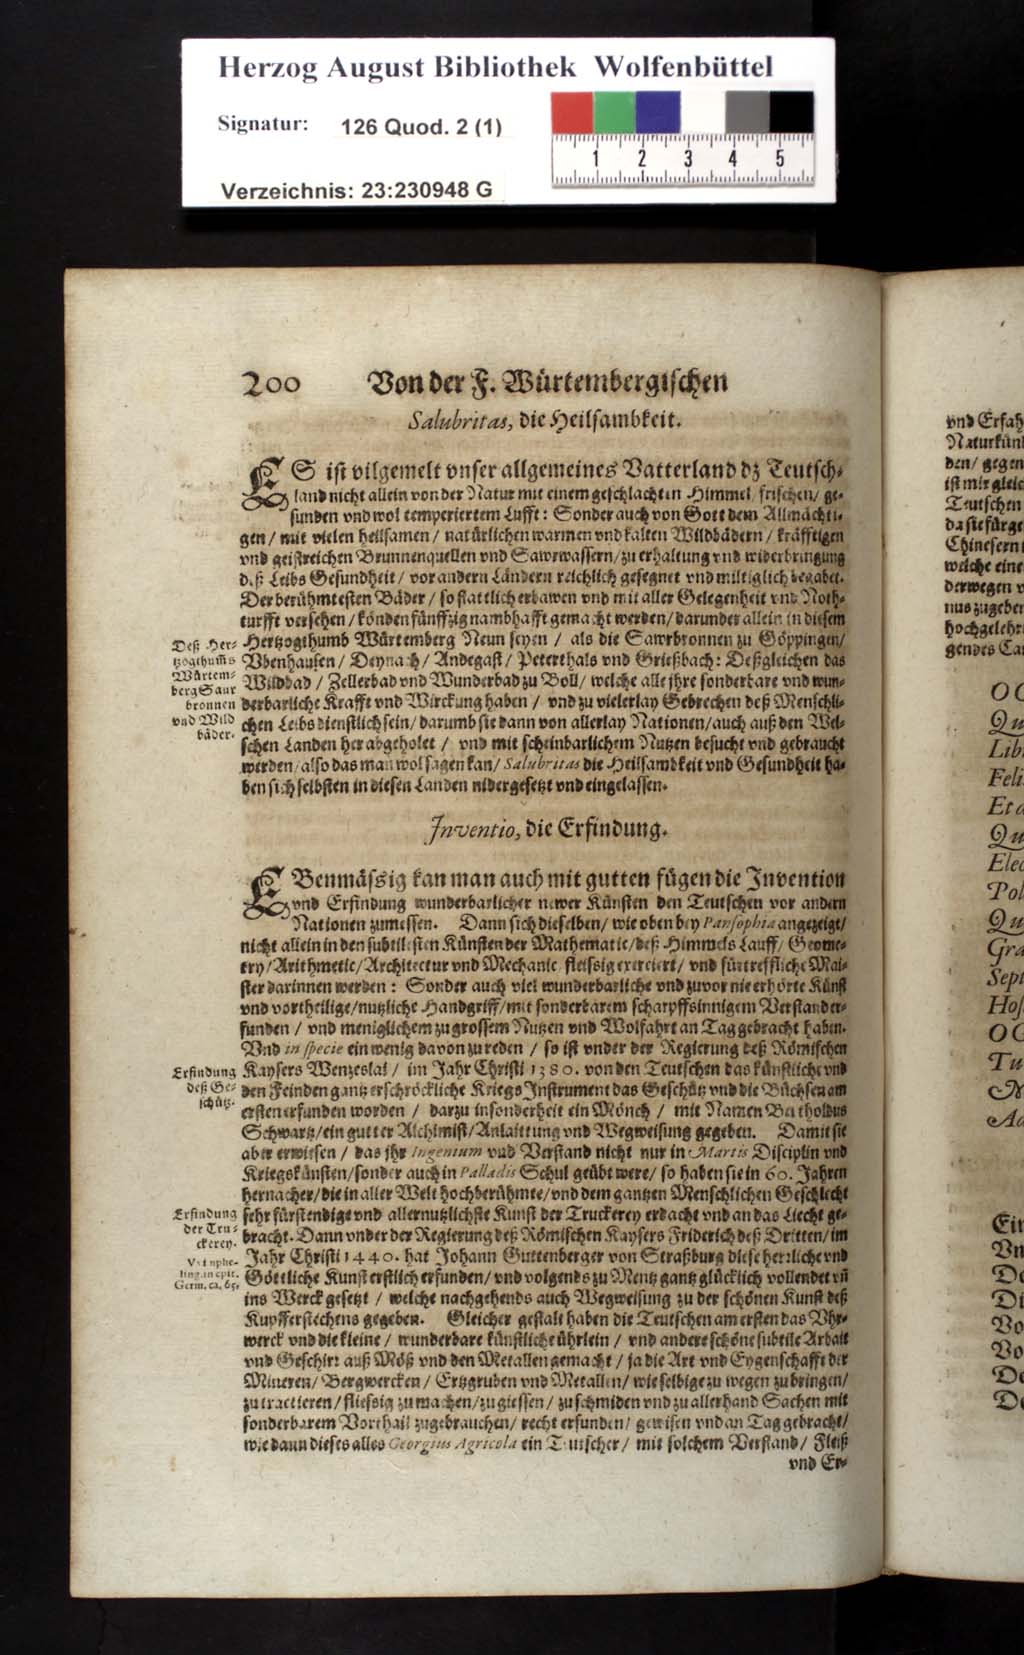 Herzog August Bibliothek Wolfenbüttel
Signatur: 126 Quod. 2 (1)
1 2 3 4 5
Verzeichnis: 23:230948 G
200 Von der F. Würtembergischen
Salubritas, die Heilsambkeit.
ES ist vilgemelt vnser allgemeines Vatterland dz Teutsch⸗
land nicht allein von der Natur mit einem geschlachten Himmel, frischen/ ge⸗
sunden vnd wol temperiertem Lufft: Sonder auch von Gott dem Allmächti⸗
gen / mit vielen heilsamen / natürlichen warmen vnd kalten Wildbädern / kräfftigen
vnd geistreichen Brunnenquellen vnd Sawrwassern / zu erhaltung vnd widerbringung
deß Leibs Gesundheit / vor andern Ländern reichlich gesegnet vnd miltiglich begabet.
Der berühmtesten Bäder / so stattlich erbawen vnd mit aller Gelegenheit vnd Noth⸗
turfft versehen / könden fünffzig nambhafft gemacht werden / darunder allein in diesem
Hertzogthumb Würtemberg Neun seyen / als die Sawrbronnen zu Göppingen/
Vbenhausen / Deynach / Andegast / Peterthals vnd Grießbach: Deßgleichen das
Wildbad / Zellerbad vnd Wunderbad zu Boll / welche alle jhre sonderbare vnd wun⸗
derbarliche Krafft vnd Wirckung haben / vnd zu vielerlay Gebrechen deß Menschli⸗
chen Leibs dienstlich sein / darumb sie dann von allerlay Nationen / auch auß den Wel⸗
schen Landen her abgeholet / vnd mit scheinbarlichem Nutzen besucht vnd gebraucht
werden / also das man wol sagen kan / Salubritas die Heilsambkeit vnd Gesundheit ha⸗
ben sich selbsten in diesen Landen nidergesetzt vnd eingelassen.
Deß Her⸗
tzogthum̃s
Würtem⸗
berg Saur
bronnen
vnd Wild
bäder.
Inventio, die Erfindung.
EBenmässig kan man auch mit gutten fügen die Invention
vnd Erfindung wunderbarlicher newer Künsten den Teutschen vor andern
Nationen zumessen. Dann sich dieselben / wie oben bey Pansophia angezeigt/
nicht allein in den subtilesten Künsten der Mathematic / deß Himmels Lauff / Geome⸗
try / Arithmetic / Architectur vnd Mechanic fleissig exerciert / vnd fürtreffliche Mai⸗
ster darinnen werden: Sonder auch viel wunderbarliche vnd zuvor nie erhörte Künst
vnd vortheilige / nutzliche Handgriff / mit sonderbarem scharpffsinnigem Verstand er⸗
funden / vnd meniglichem zu grossem Nutzen vnd Wolfahrt an Tag gebracht haben.
Vnd in specie ein wenig davon zu reden / so ist vnder der Regierung deß Römischen
Kaysers Wenzeslai / im Jahr Christi 1380. von den Teutschen das künstliche vnd
den Feinden gantz erschröckliche Kriegs Instrument das Geschütz vnd die Büchsen am
ersten erfunden worden / darzu insonderheit ein Mönch / mit Namen Bertholdus
Schwartz / ein gutter Alchimist / Anlaittung vnd Wegweisung gegeben. Damit sie
aber erwiesen / das jhr Ingenium vnd Verstand nicht nur in Martis Disciplin vnd
Kriegskünsten / sonder auch in Palladis Schul geübt were / so haben sie in 60. Jahren
hernacher / die in aller Welt hochberühmte / vnd dem gantzen Menschlichen Geschlecht
sehr fürstendige vnd allernutzlichste Kunst der Truckerey erdacht vnd an das Liecht ge⸗
bracht. Dann vnder der Regierung deß Römischen Kaysers Friderich deß Dritten / im
Jahr Christi 1440. hat Johann Guttenberger von Straßburg diese herzliche vnd
Göttliche Kunst erstlich erfunden / vnd volgends zu Mentz gantz glücklich vollendet vñ
ins Werck gesetzt / welche nachgehends auch Wegweisung zu der schönen Kunst deß
Kupfferstechens gegeben. Gleicher gestalt haben die Teutschen am ersten das Vhr⸗
werck vnd die kleine / wunderbare künstliche ührlein / vnd andere schöne subtile Arbait
vnd Geschirr auß Möß vnd den Metallen gemacht / ja die Art vnd Eygenschafft der
Mineren / Bergwercken / Ertzgruben vnd Metallen / wie selbige zu wegen zu bringen/
zu tractieren / fliessig zu machen / zu giessen / zu schmiden vnd zu allerhand Sachen mit
sonderbarem Vorthail zugebrauchen / recht erfunden / gewisen vnd an Tag gebracht/
wie dann dieses alles Georgius Agricola ein Teutscher / mit solchem Verstand / Fleiß
vnd Er⸗
Erfindung
deß Ge⸗
schütz.
Erfindung
der Tru⸗
ckerey.
Germ. ca. 65.
vnd Erfah
Naturkün
den / gegen
ist mir gleic
Teutschen
da sie fürge
Chinesern
welche eine
derwegen v
nus zugeben
hochgelehr
gendes Ca
OC
Qu
Libr
Felic
Et a
Qu
Elec
Pol
Qu
Gra
Sept
Hos
OC
Tu
Ad
Ein
Vn
De
Di
Vo
Vo
De
De